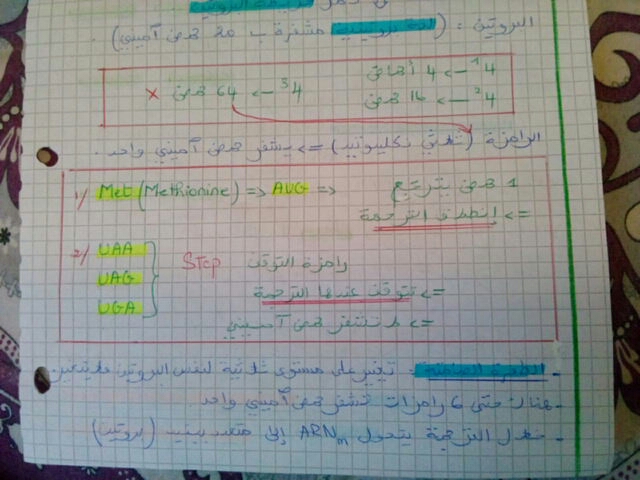 البروتين : (لغة بروتينية مشفرة ب 20 حمض أميني).
4¹ <— 4 أحماض
4² <— 16 حمض
4³ <— 64 حمض ×
الرامزة (ثلاثي نكليوتيد) <= يشفر حمض أميني واحد.
1) Met (Methionine) => AUG => 1 حمض يترجم
<= إنطلاق الترجمة
2) UAA
UAG
UGA
Stop رامزة التوقف
<= تتوقف عندها الترجمة
<= لا تشفر حمض أميني
- الطفرة الصامتة : تغيير على مستوى ثلاثية لنفس البروتين
- هناك حتى 6 رامزات تشفر حمض أميني واحد
- خلال الترجمة يتحول ARNm إلى متعدد ببتيد (بروتين)